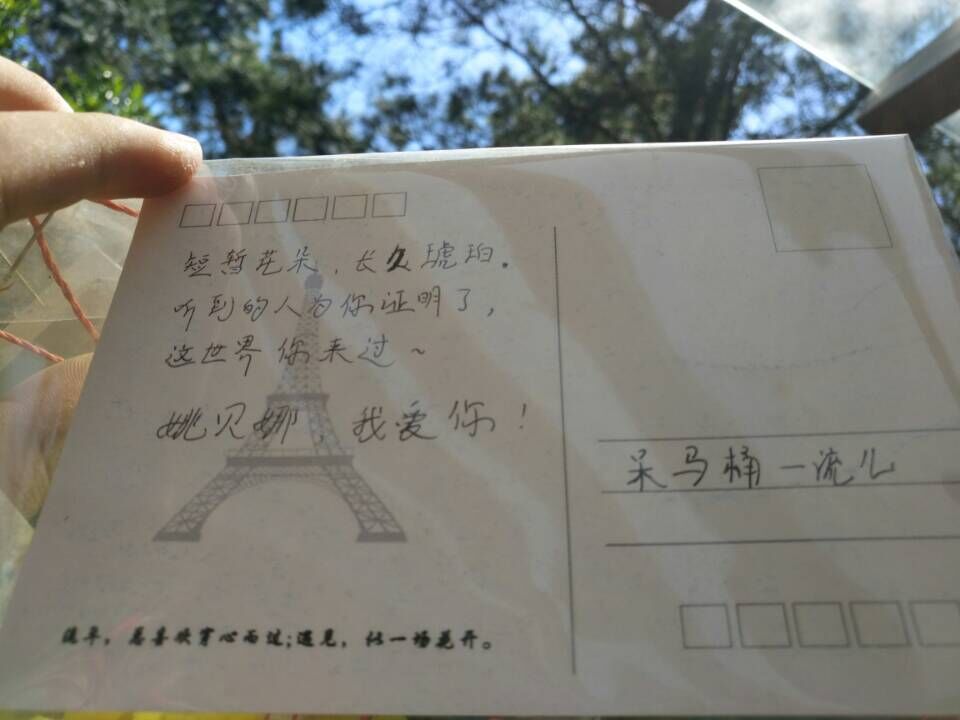 短暂花朵，长久琥珀。
听到的人为你证明了，
这世界你来过~
姚贝娜，我爱你！
呆马桶一流儿
流年，悲喜欢穿心而过;遇见，比一场花开。